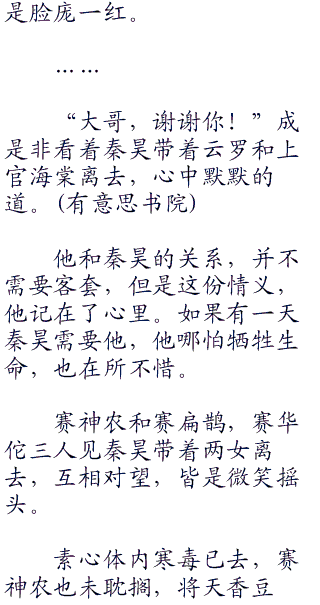 是脸庞一红。
……
“大哥，谢谢你！”成
是非看着秦昊带着云罗和上
官海棠离去，心中默默的
道。(有意思书院)
他和秦昊的关系，并不
需要客套，但是这份情义，
他记在了心里。如果有一天
秦昊需要他，他哪怕牺牲生
命，也在所不惜。
赛神农和赛扁鹊，赛华
佗三人见秦昊带着两女离
去，互相对望，皆是微笑摇
头。
素心体内寒毒已去，赛
神农也未耽搁，将天香豆